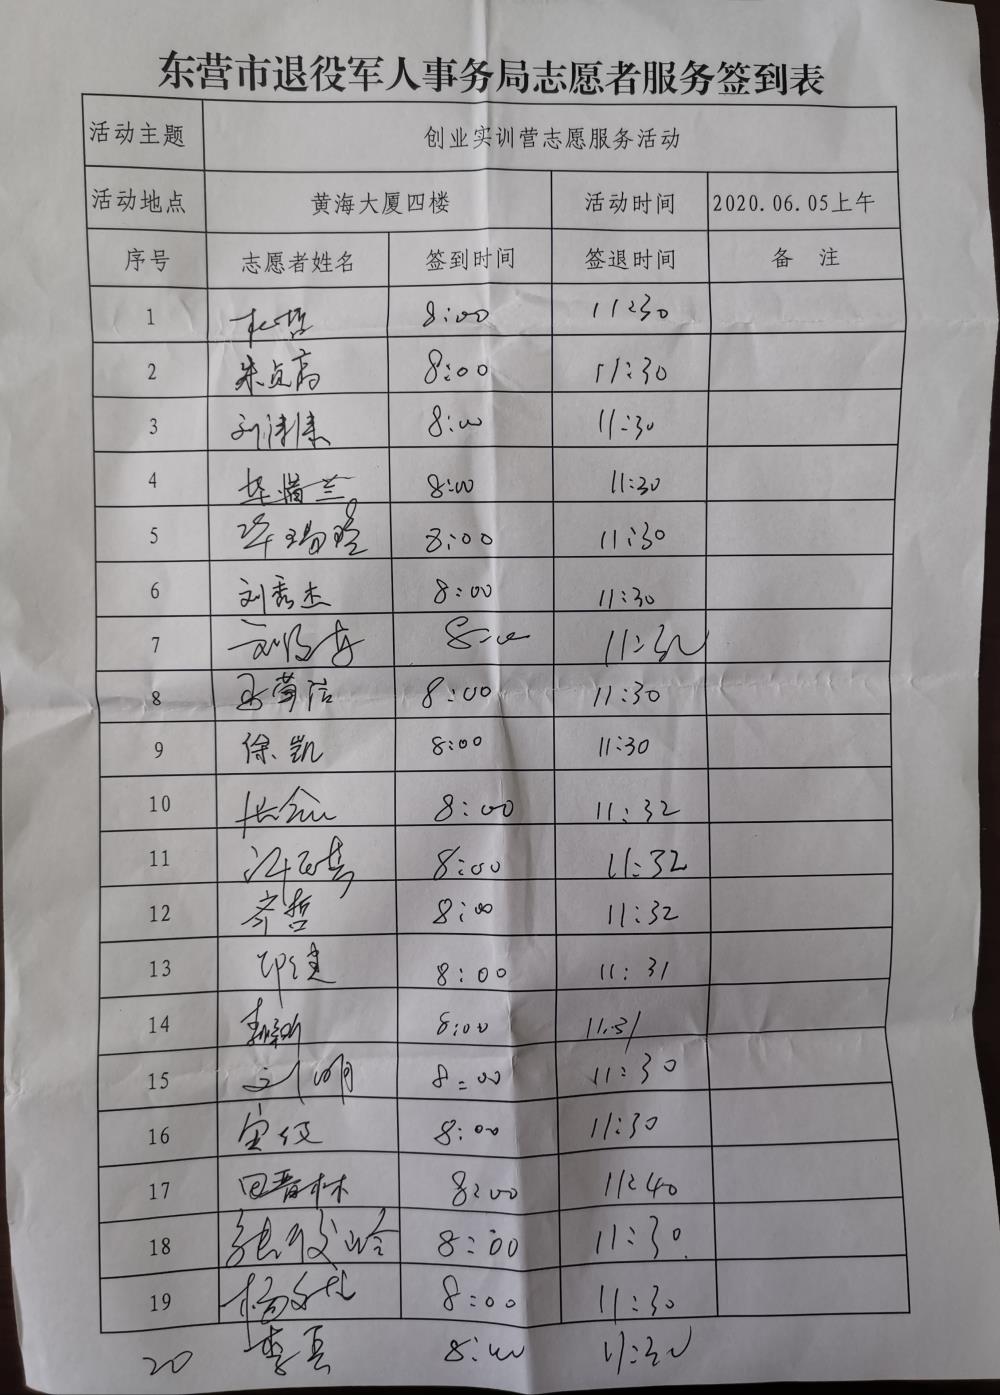 东营市退役军人事务局志愿者服务签到表
活动主题 创业实训营志愿服务活动
活动地点 黄海大厦四楼 活动时间 2020.06.05上午
序号 志愿者姓名 签到时间 签退时间 备 注
1 杜哲 8:00 11:30
2 朱贞高 8:00 11:30
3 刘 8:00 11:30
4 兰 8:00 11:30
5 8:00 11:30
6 刘秀杰 8:00 11:30
7 刘 8:00 11:30
8 王营洁 8:00 11:30
9 徐凯 8:00 11:30
10 8:00 11:32
11 8:00 11:32
12 齐哲 8:00 11:32
13 邱健 8:00 11:31
14 8:00 11:31
15 刘明 8:00 11:30
16 8:00 11:30
17 田晋林 8:00 11:40
18 张 8:00 11:30
19 杨 8:00 11:30
20 李真 8:00 11:30